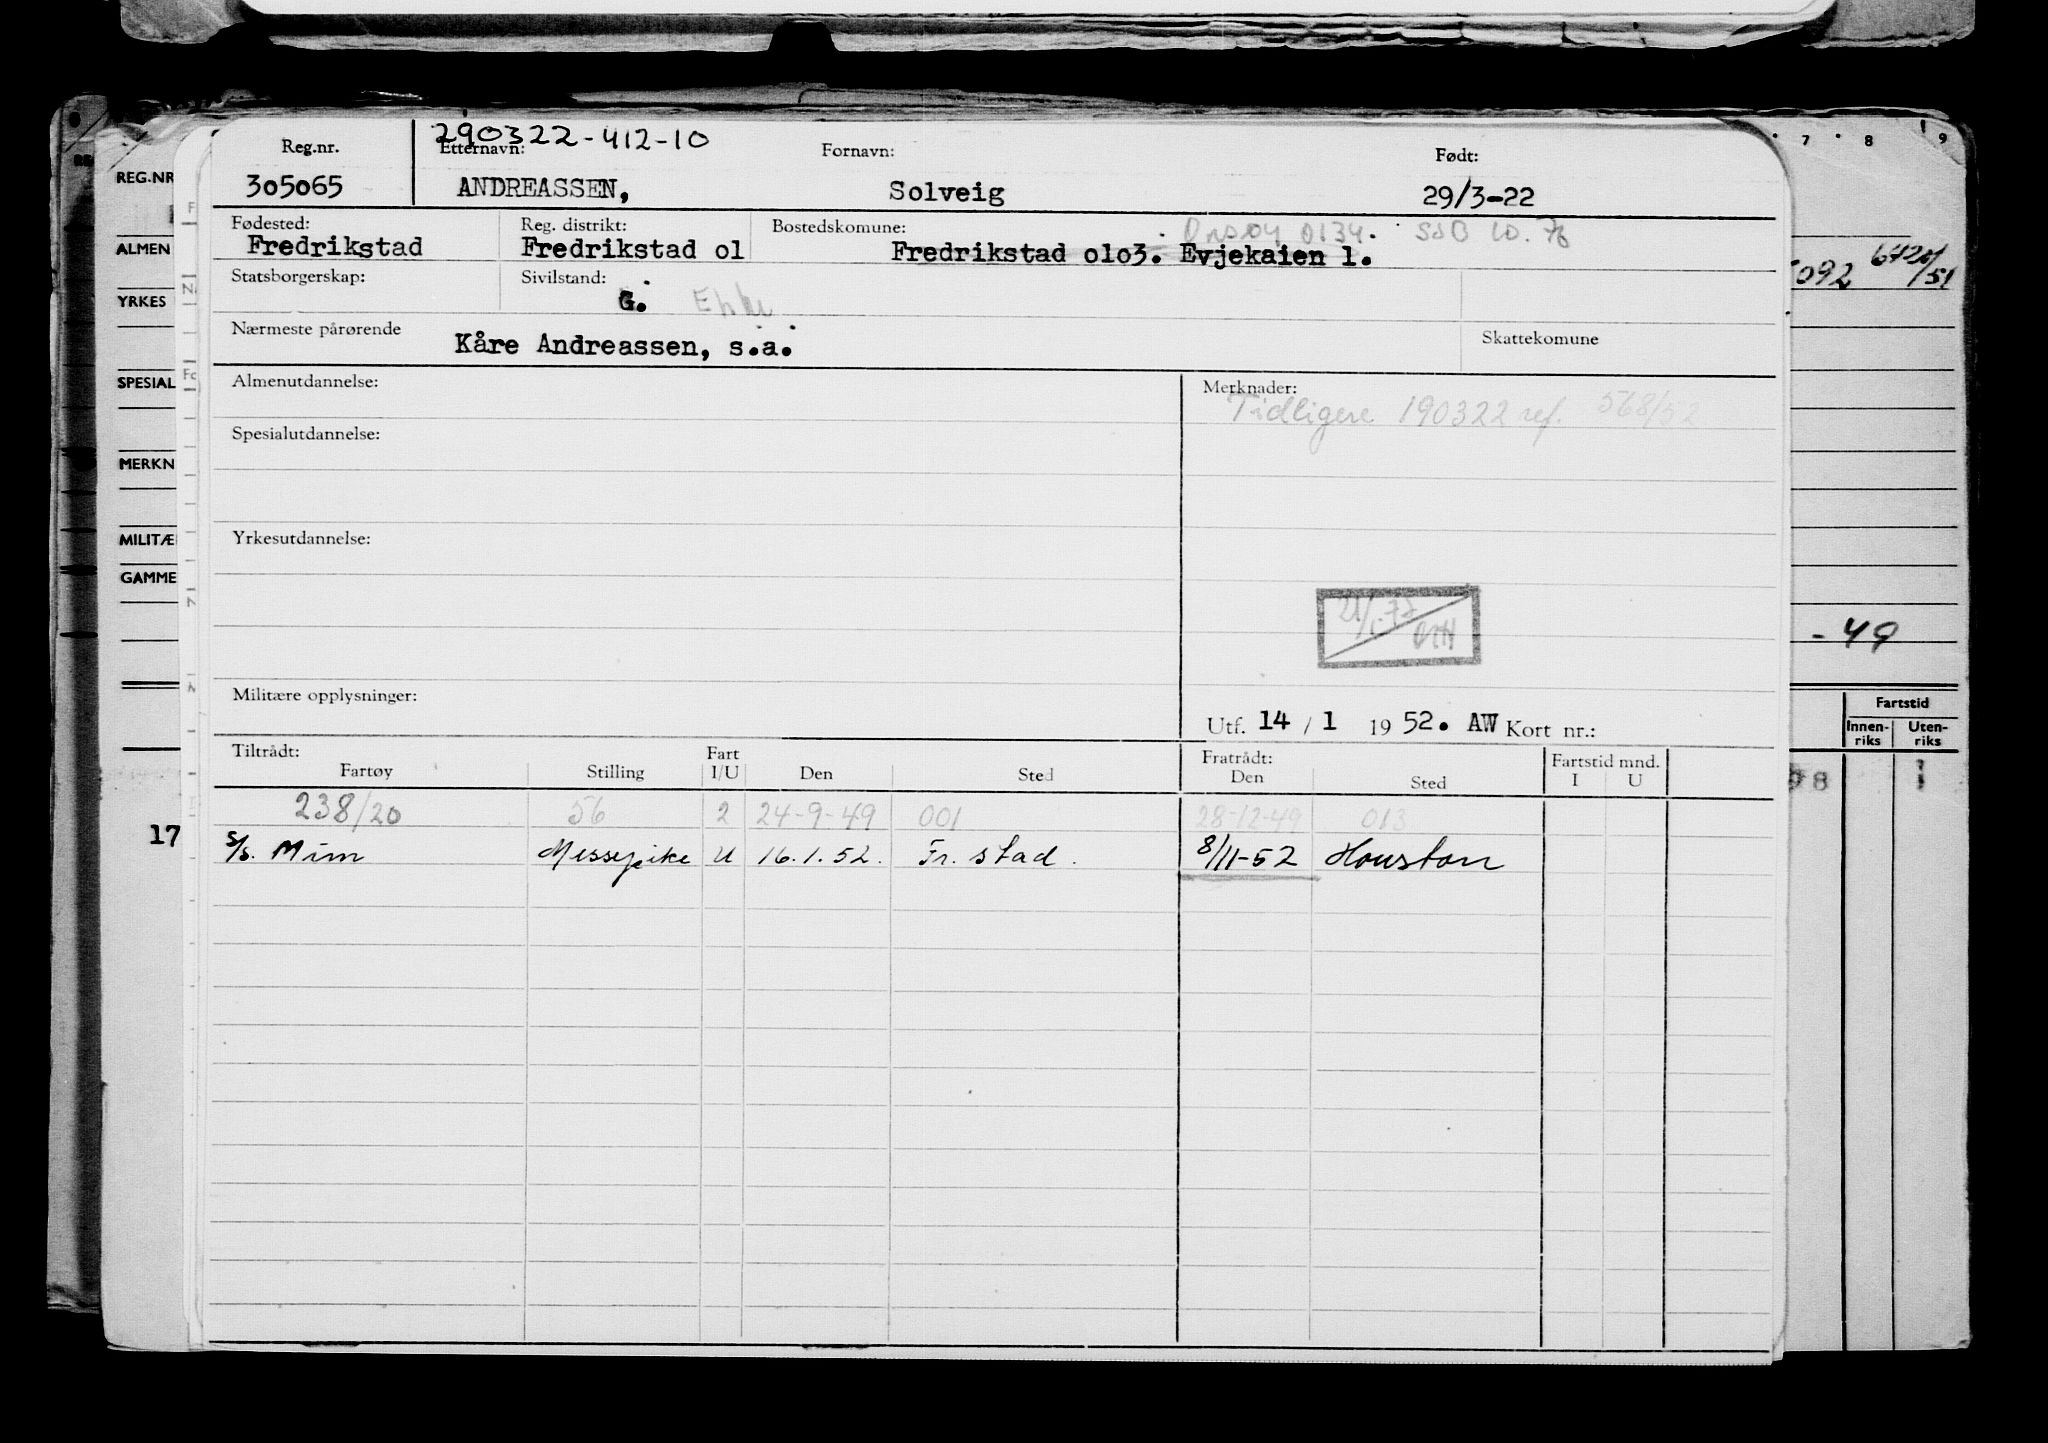 7 8 9
290322-412-10
Reg.nr. Etternavn: Fornavn: Født:
305065 ANDREASSEN, Solveig 29/3-22
REG.NR
Fødested: Reg. distrikt: Bostedskomune: 0134. SSB 10.76
Fredrikstad Fredrikstad 01 Fredrikstad 0103. Evjekaien 1.
ALMEN 092 6420/51
Statsborgerskap: Sivilstand:
YRKES G. Enke
Nærmeste pårørende Skattekomune
Kåre Andreassen, s.a.
SPESIAL
Almenutdannelse: Merknader:
Tidligere 190322 ref. 568/52
Spesialutdannelse:
MERKN
Yrkesutdannelse:
MILITÆ
GAMME
21/1-77
-49
Militære opplysninger:
Utf. 14 / 1 1952. AW Kort nr.:
Fartstid
Innen-riks Uten-riks
Tiltrådt: Fart Fratrådt: Fartstid mnd.
Fartøy Stilling I/U Den Sted Den Sted I U
238/20 56 2 24-9-49 001 28-12-49 013
8 1
17 s/s. Mim Messepike U 16.1.52. Fr.stad. 8/11-52 Houston